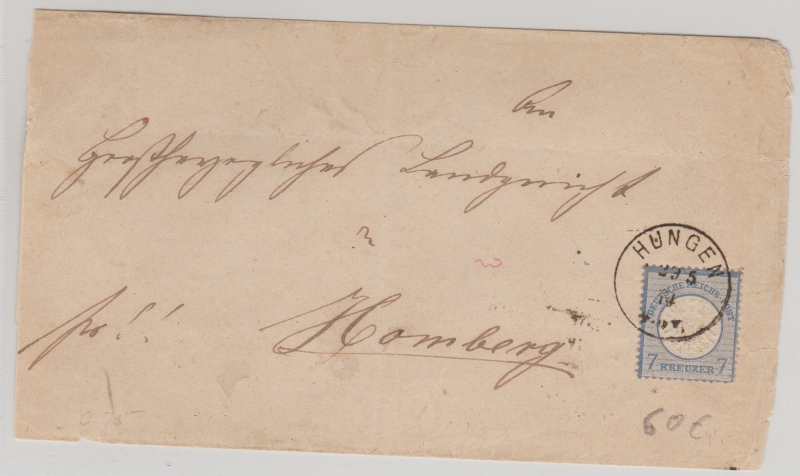 An
Großherzogliches Landgericht
Homberg
HUNGEN
DEUTSCHE REICHS-POST
7 KREUZER 7
60 €